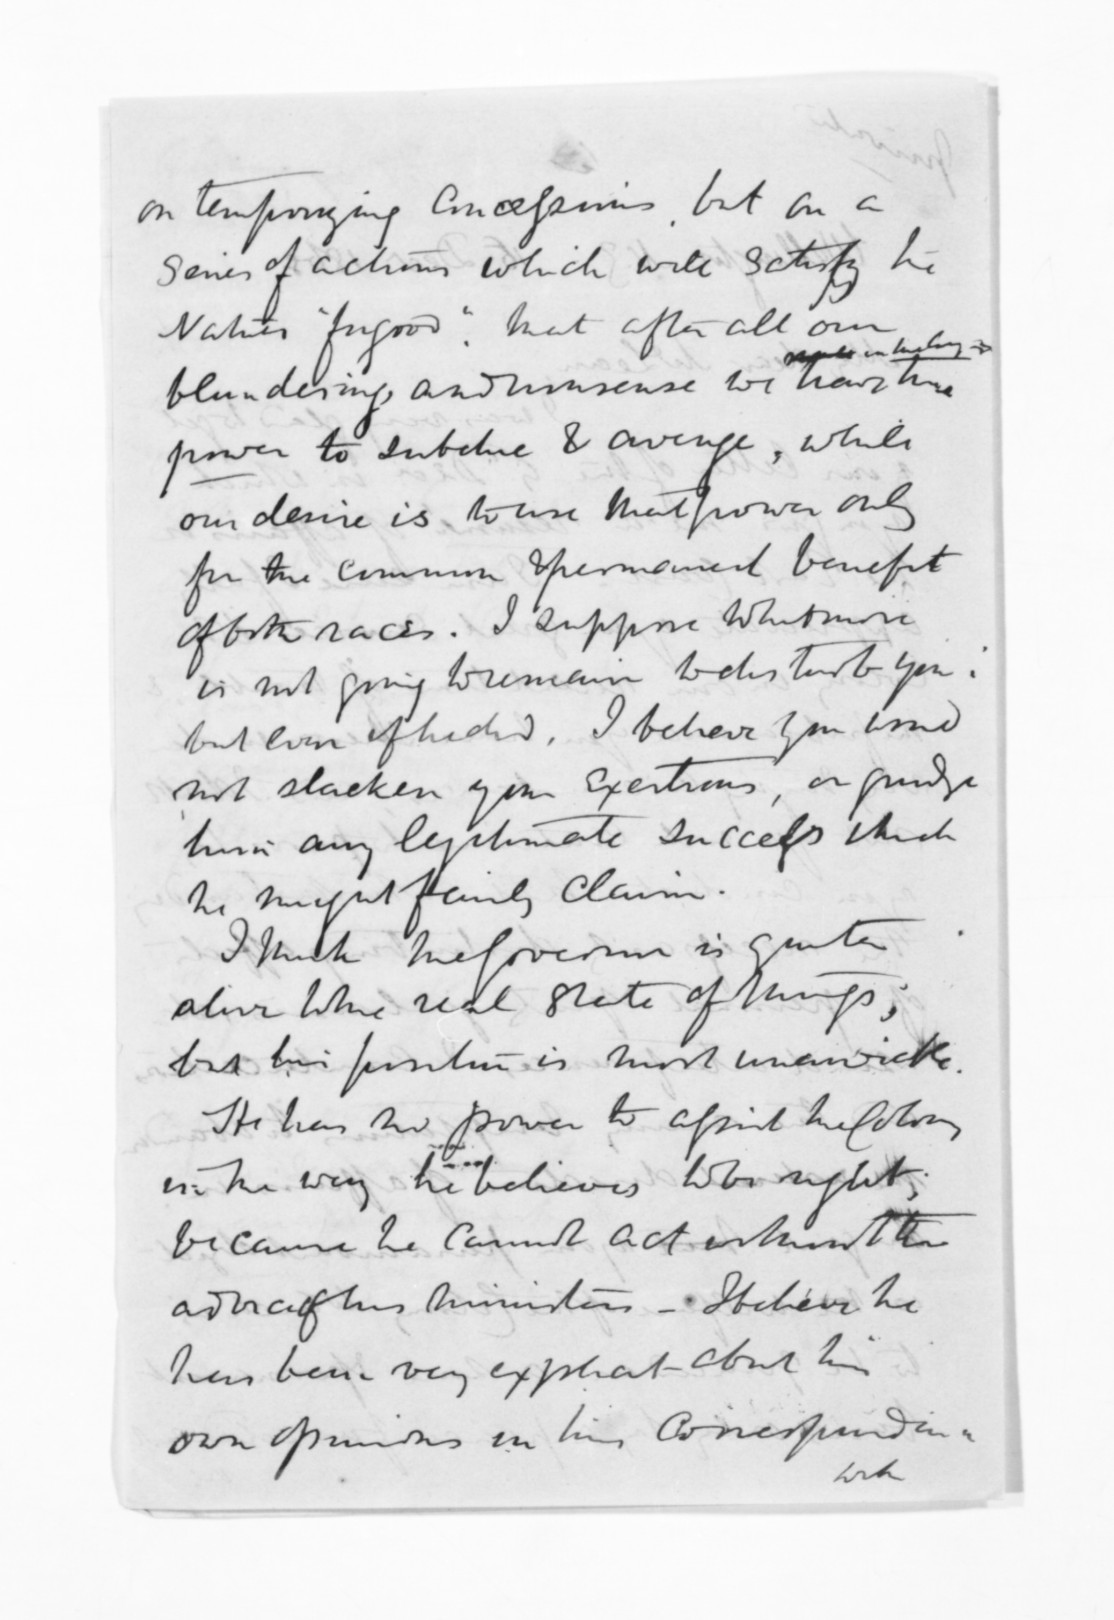 on temporizing concessions, but on a
series of actions which will satisfy the
Natives "for good": that after all our
blundering, and nonsense we have the
power to subdue & avenge, while
our desire is to use that power only
for the common & permanent benefit
of both races. I suppose Whitmore
is not going to remain to disturb you;
but even if he did, I believe you would
not slacken your exertions, or grudge
him any legitimate success which
he might fairly claim.
I think the Governor is quite
alive to the real state of things;
but his position is most unenviable.
He has no power to assist the Colony
in the way he believes to be right;
because he cannot act without the
advice of his ministers - I believe he
has been very explicit about his
own opinions in his correspondence
with